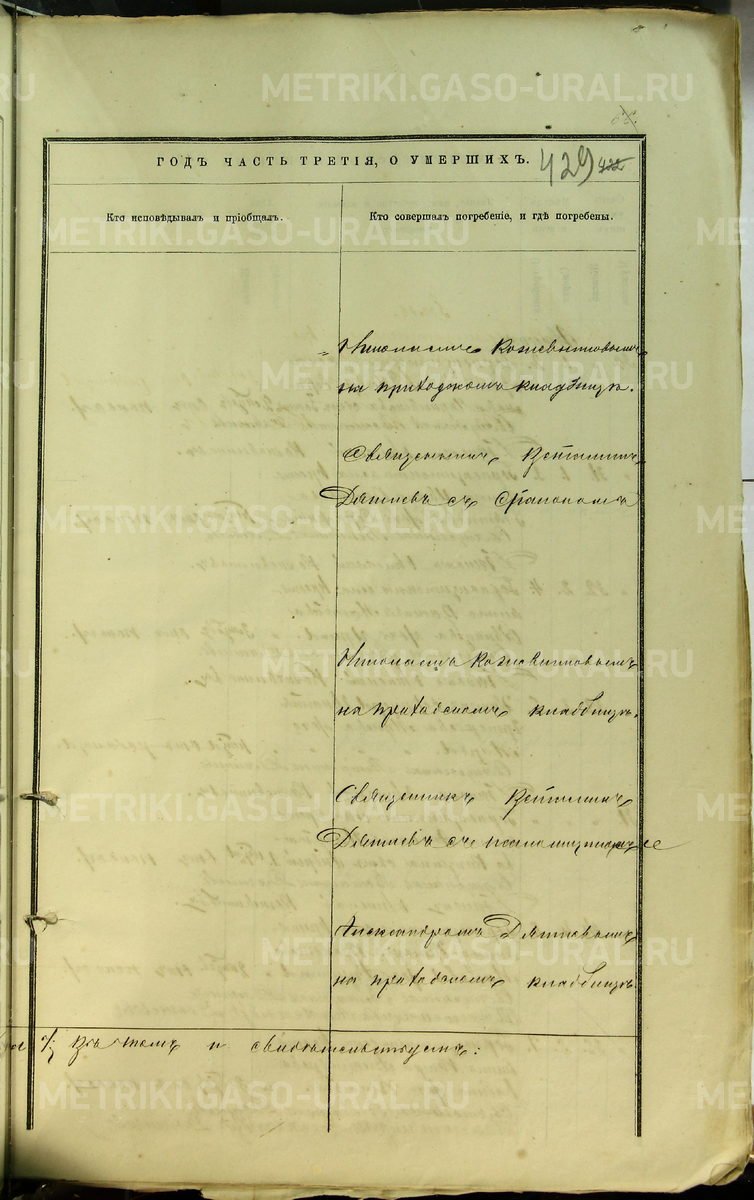 METRIKI.GASO-URAL.RU
ГОДЪ ЧАСТЬ ТРЕТІЯ, О УМЕРШИХЪ. 429
Кто исповѣдывалъ и пріобщалъ.
Кто совершалъ погребеніе, и гдѣ погребены.
Николаемъ Кожевниковымъ
на приходскомъ кладбищѣ.
Священникъ
Дягилевъ съ
Николаемъ Кожевниковымъ
на приходскомъ кладбищѣ.
Священникъ
Дягилевъ съ псаломщикомъ
Александромъ Дягилевымъ
на приходскомъ кладбищѣ.
въ томъ и свидѣтельствуемъ: